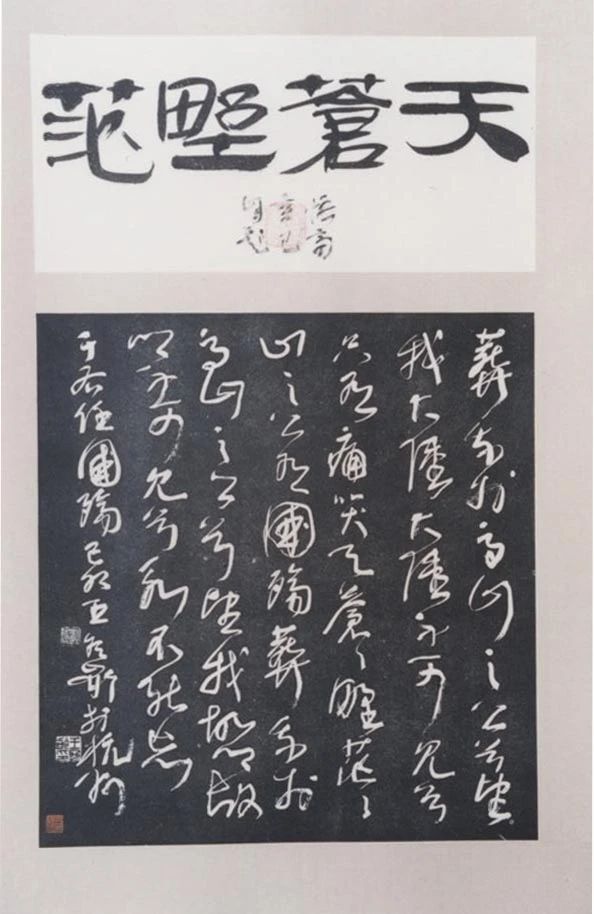 天蒼野茫
葬我於高山之上兮望
我大陸大陸不可見兮
只有痛哭天蒼〻野茫〻
山之上有國殤葬我於
高山之上兮望我故鄉故
鄉不可見兮永不能忘
于右任國殤 己卯 王冬齡於杭州